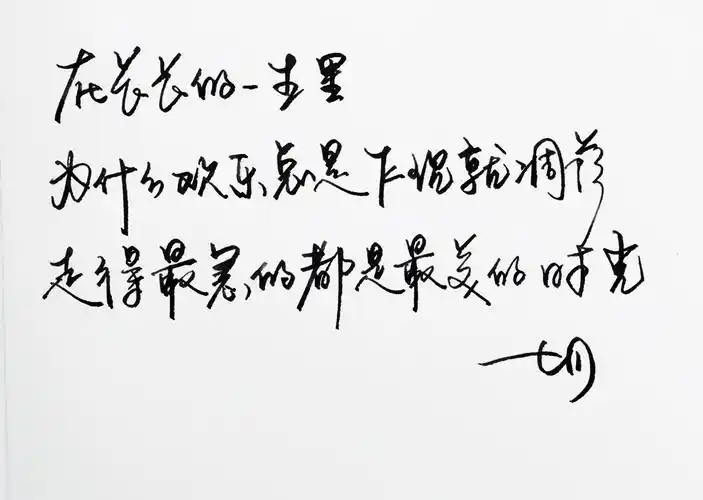 在长长的一生里
为什么欢乐总是乍现就凋落
走得最急的都是最美的时光